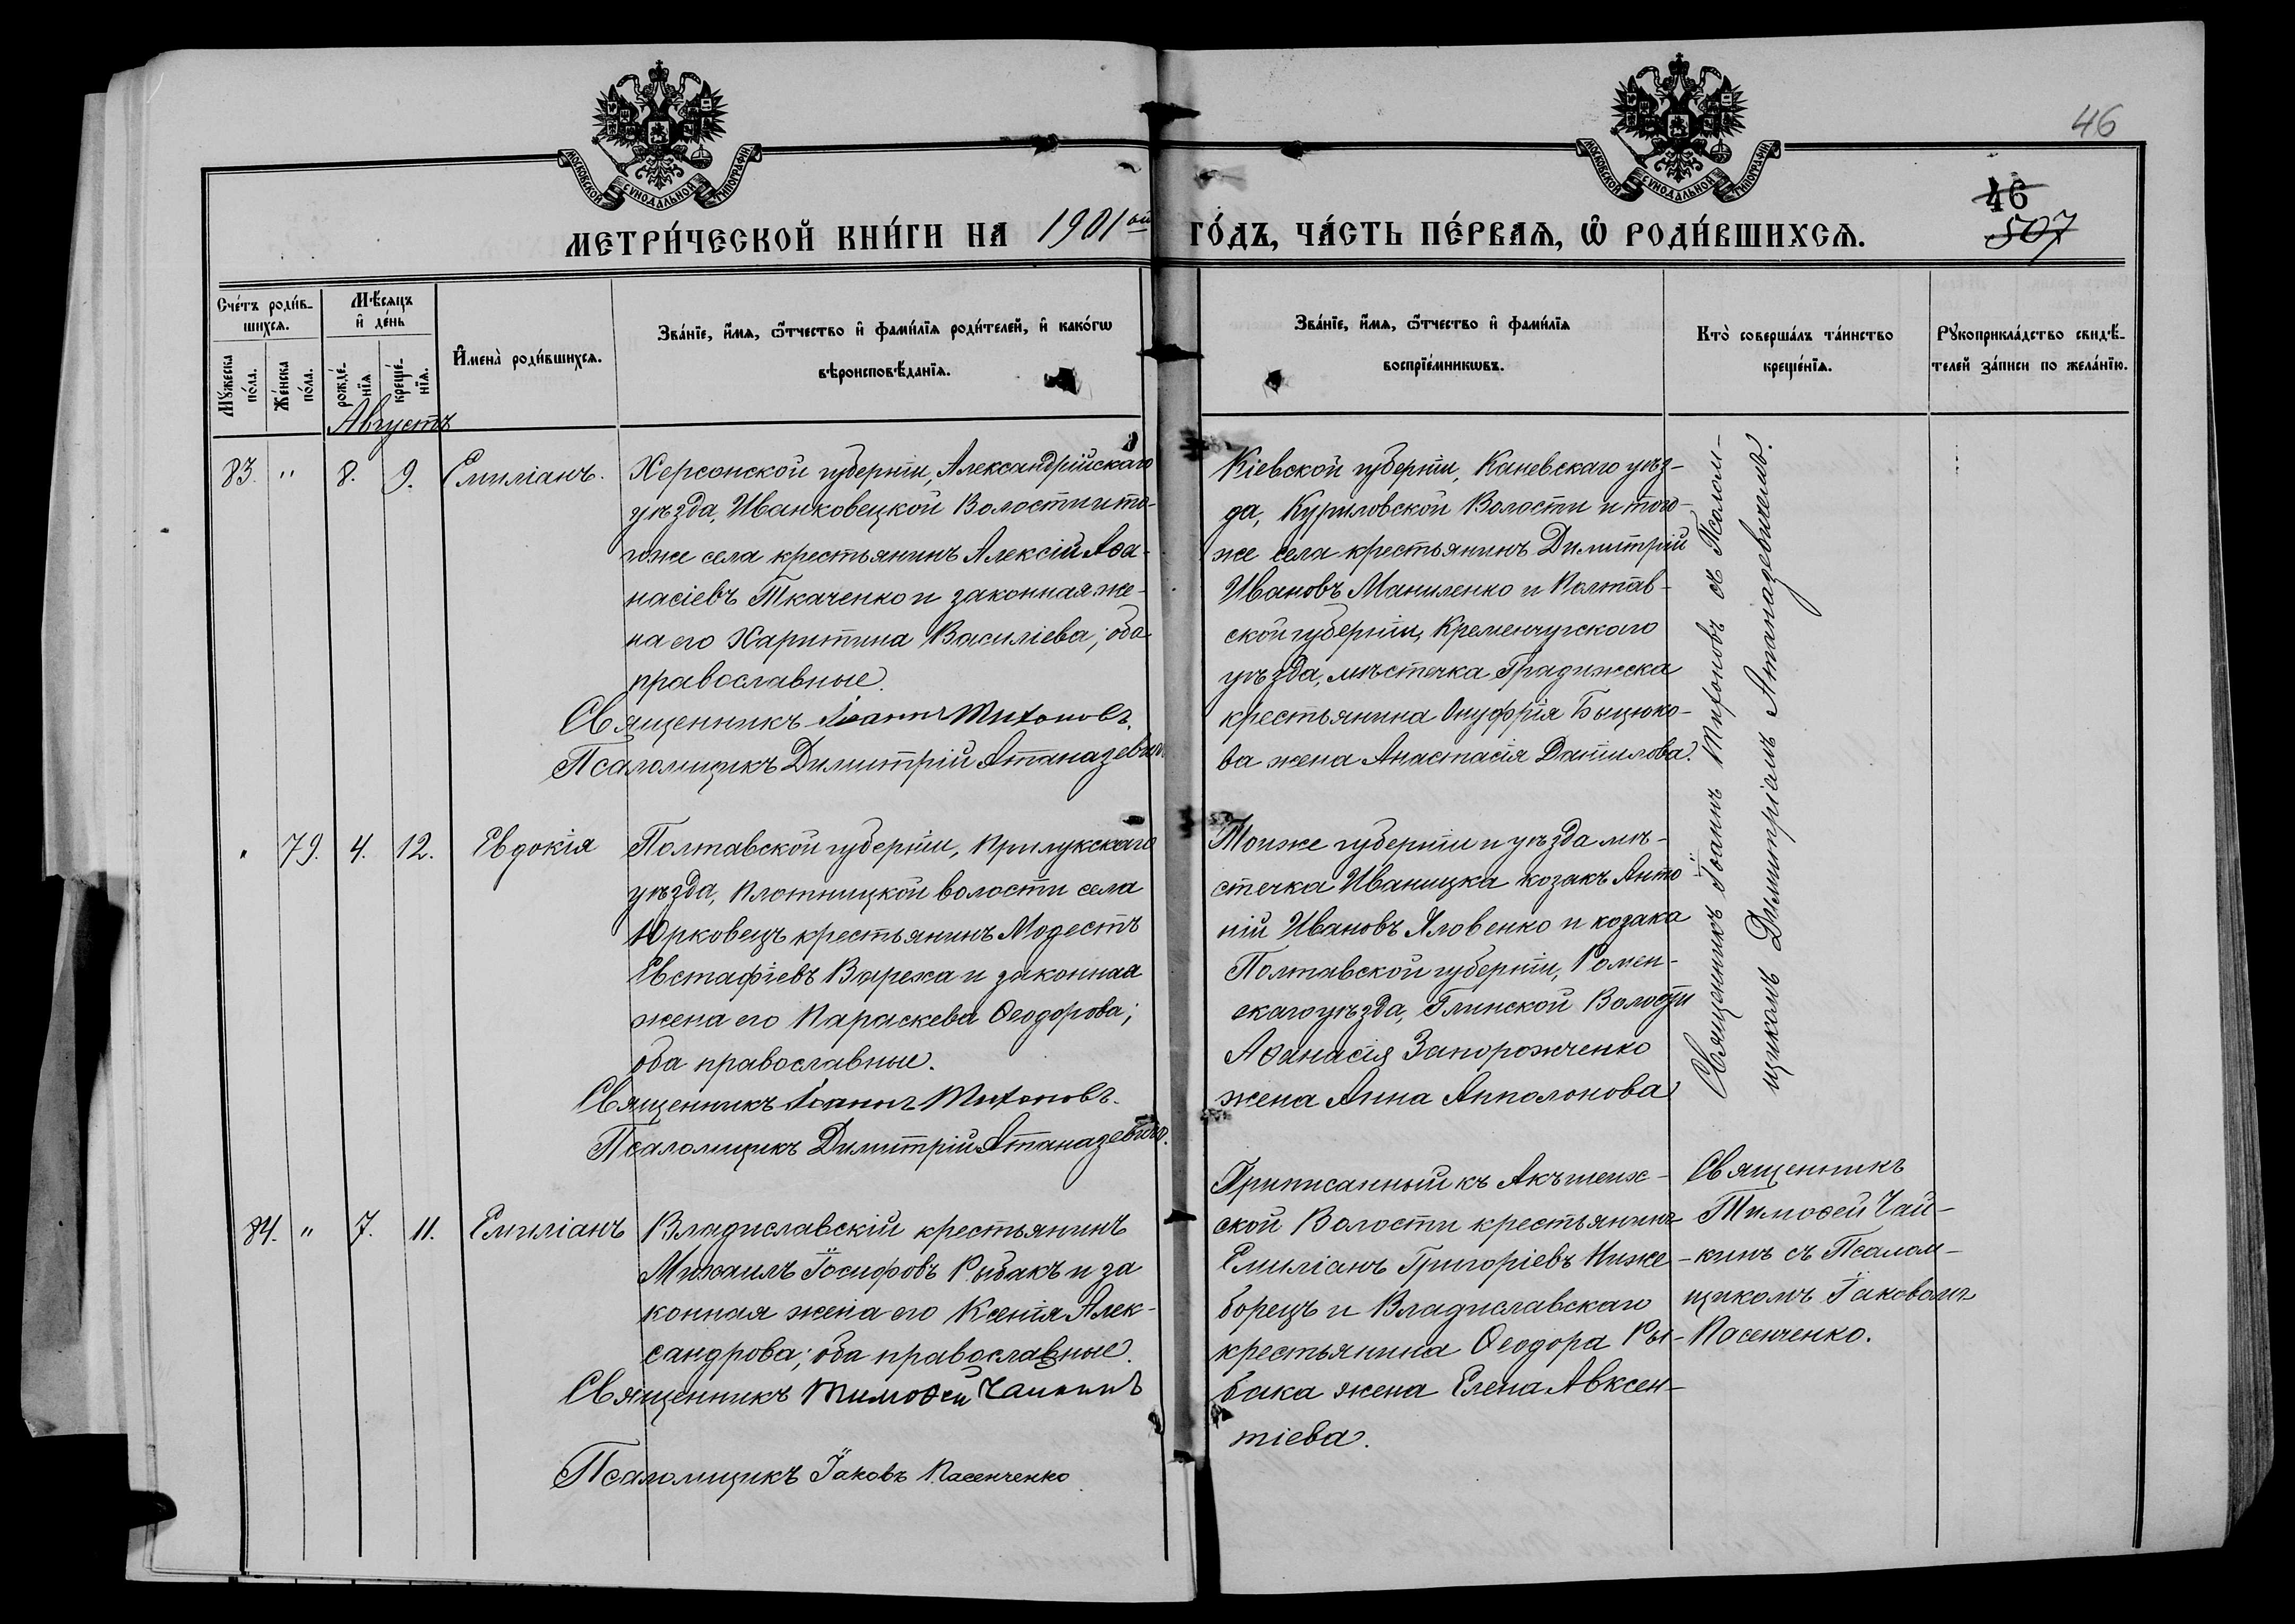 46
46
507
МОСКОВСКОЙ СУНОДАЛЬНОЙ ТИПОГРАФІИ
МОСКОВСКОЙ СУНОДАЛЬНОЙ ТИПОГРАФІИ
МЕТРИ́ЧЕСКОЙ КНИ́ГИ НА 1901ый ГО́ДЪ, ЧА́СТЬ ПЕ́РВАѦ, Ѡ РОДИ́ВШИХСѦ.
Счетъ роди́в-
шихсѧ.
Мꙋжеска
по́ла.
Же́нска
по́ла.
Мѣ́сѧцъ
и҆ де́нь
рожде́-
нїѧ
креще́-
нїѧ.
И҆мена̀ роди́вшихсѧ.
Зва́нїе, и҆́мѧ, ѻ҆́тчество и҆ фами́лїѧ роди́телей, и҆ како́гѡ
вѣроисповѣ́данїѧ.
Зва́нїе, и҆́мѧ, ѻ҆́тчество и҆ фами́лїѧ
воспрїе́мникѡвъ.
Кто̀ соверша́лъ та́инство
креще́нїѧ.
Рꙋкоприкла́дство свидѣ́-
телей за́писи по жела́нїю.
Августъ
83. " 8. 9. Емиліанъ.
Херсонской губерніи, Александрійскаго
уѣзда, Иванковецкой Волости и то-
гоже села крестьянинъ Алексій Аѳа-
насіевъ Ткаченко и законная же-
на его Харитина Василіева; оба
православные.
Священникъ Іоаннъ Тихоновъ.
Псаломщикъ Димитрій Атаназевичъ
Кіевской губерніи, Каневскаго уѣз-
да, Куриловской Волости и того-
же села крестьянинъ Димитрій
Ивановъ Маниленко и Полтав-
ской губерніи, Кременчугскаго
уѣзда, мѣстечка Градижска
крестьянина Онуфрія Быцюко-
ва жена Анастасія Даніилова.
Священникъ Іоаннъ Тихоновъ съ Псалом-
щикомъ Димитріемъ Атаназевичемъ.
" 79. 4. 12. Евдокія
Полтавской губерніи, Прилукскаго
уѣзда, Плотницкой волости села
Юрковецъ крестьянинъ Модестъ
Евстафіевъ Вареха и законная
жена его Параскева Ѳеодорова;
оба православные.
Священникъ Іоаннъ Тихоновъ.
Псаломщикъ Димитрій Атаназевичъ.
Тоиже губерніи и уѣзда мѣ-
стечка Иваницка козакъ Анто
ній Ивановъ Яловенко и козака
Полтавской губерніи, Ромен-
скаго уѣзда, Глинской Волости
Аѳанасія Запорожченко
жена Анна Апполонова
84. " 7. 11. Емиліанъ
Владиславскій крестьянинъ
Михаилъ Іосифовъ Рыбакъ и за
конная жена его Ксенія Алек-
сандрова; оба православные.
Священникъ Тимоѳей Чайкинъ
Псаломщикъ Іаковъ Пасенченко
Приписанный къ Акъшеих-
ской Волости крестьянинъ
Емиліанъ Григоріевъ Ниже-
борецъ и Владиславскаго
крестьянина Ѳеодора Ры-
бака жена Елена Авксен-
тіева.
Священникъ
Тимоѳей Чай-
кинъ съ Псалом-
щикомъ Іаковомъ
Пасенченко.